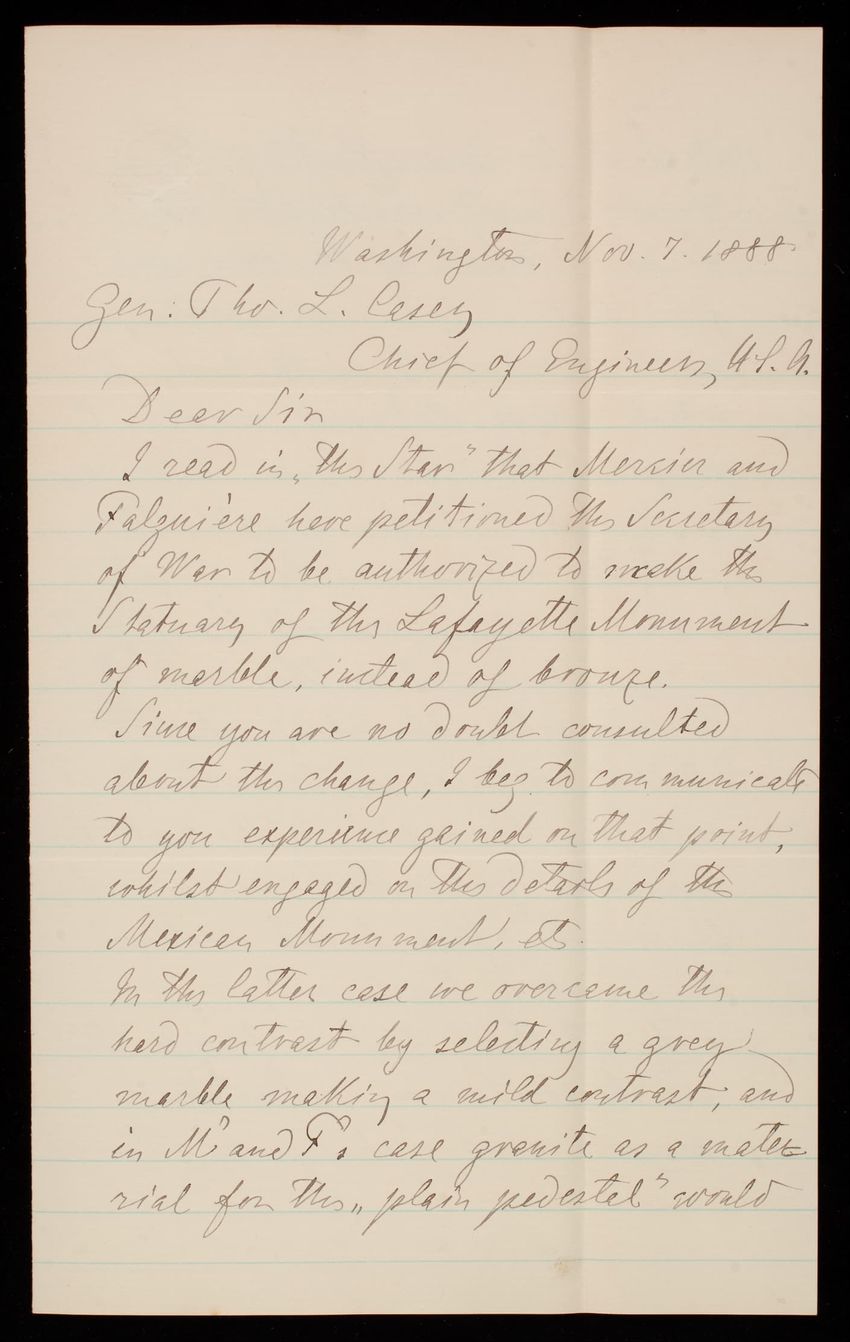 Washington, Nov. 7. 1888.
Gen. Tho. L. Casey
Chief of Engineers, U.S.A.
Dear Sir
I read in „the Star” that Mercier and
Falguière have petitioned the Secretary
of War to be authorized to make the
Statuary of the Lafayette Monument
of marble, instead of bronze.
Since you are no doubt consulted
about the change, I beg to communicate
to you experience gained on that point,
whilst engaged on the details of the
Mexican Monument, etc.
In the latter case we overcame the
hard contrast by selecting a grey
marble making a mild contrast, and
in M' and F's case granite as a mate-
rial for the „plain pedestal” would